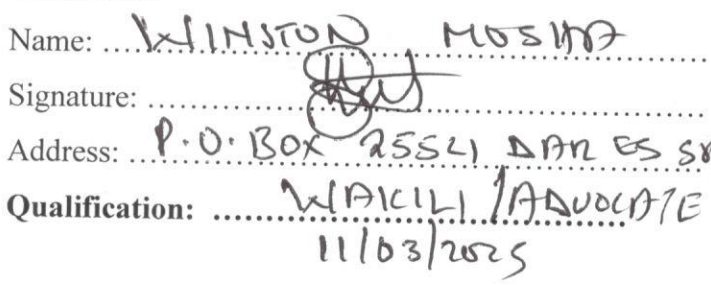 Name: WINSTON MOSHA
Signature:
Address: P.O. BOX 25521 DAR ES
Qualification: WAKILI / ADVOCATE
11/03/2025